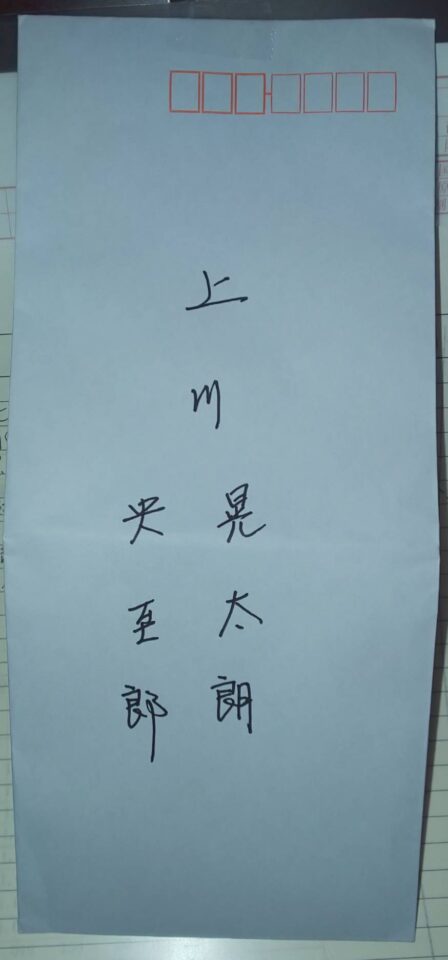 上川
晃太朗
央至郎